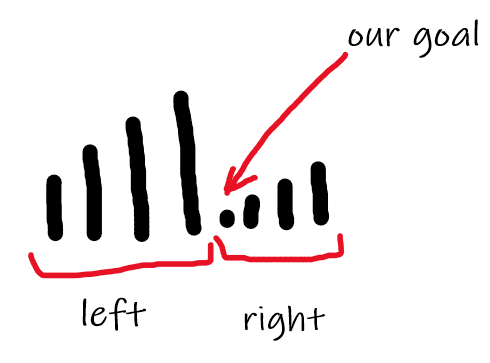 our goal
left
right